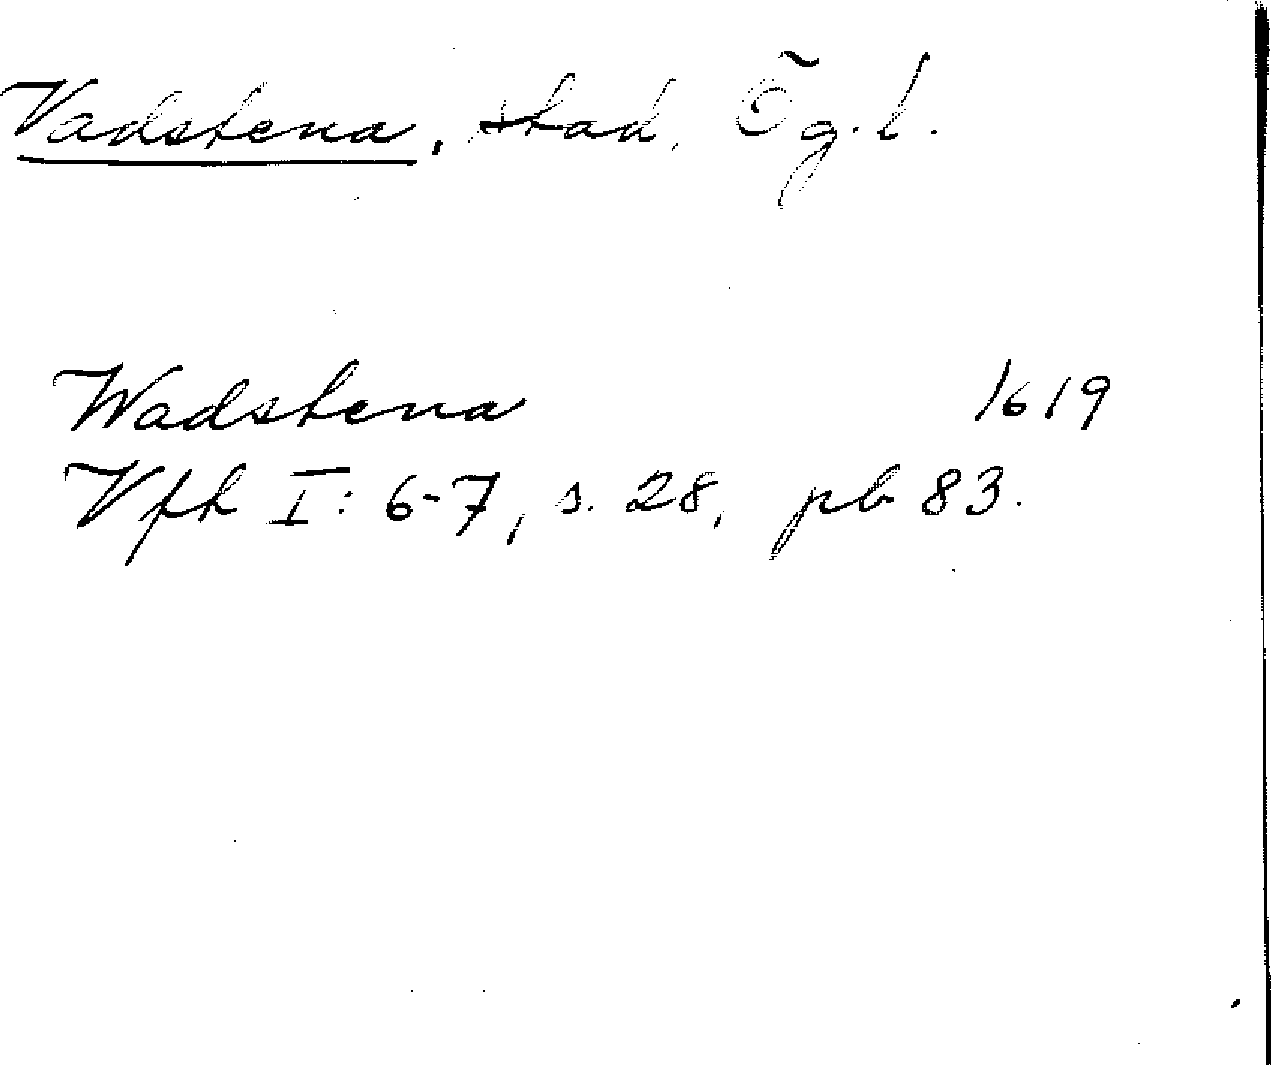 Vadstena, stad, Ög. l.
Wadstena 1619
Vfh I: 6-7, s. 28, pb 83.